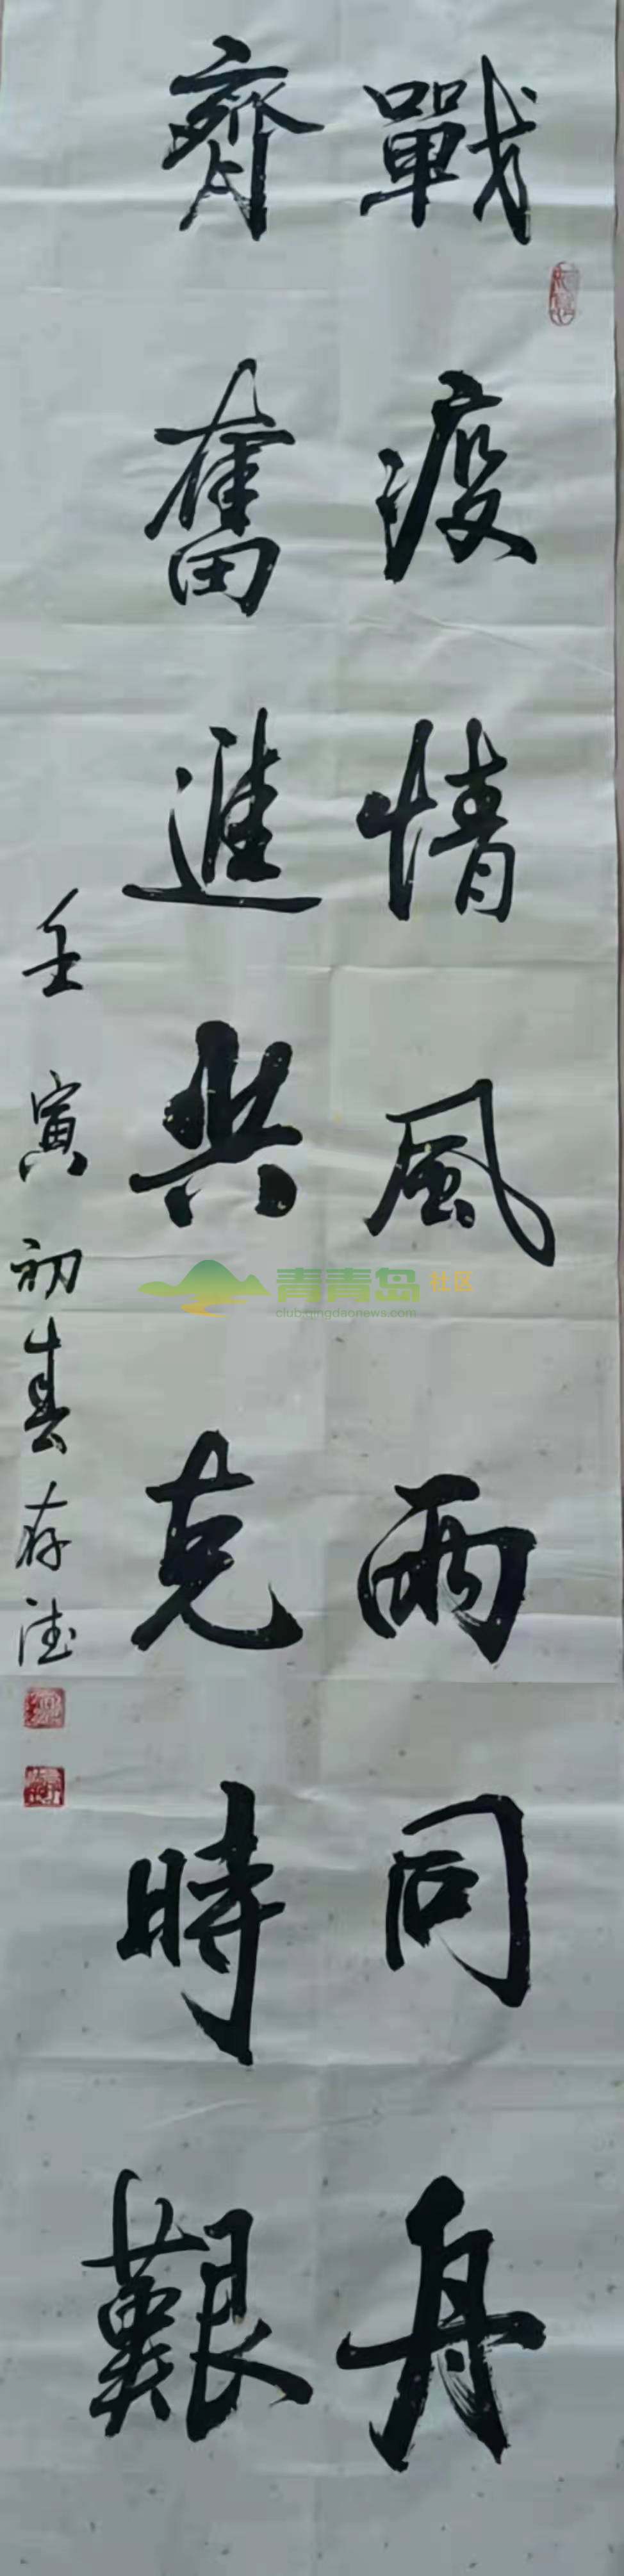 戰疫情風雨同舟
齊奮進共克時艱
壬寅初春存德
青青岛社区
club.qingdaonews.com